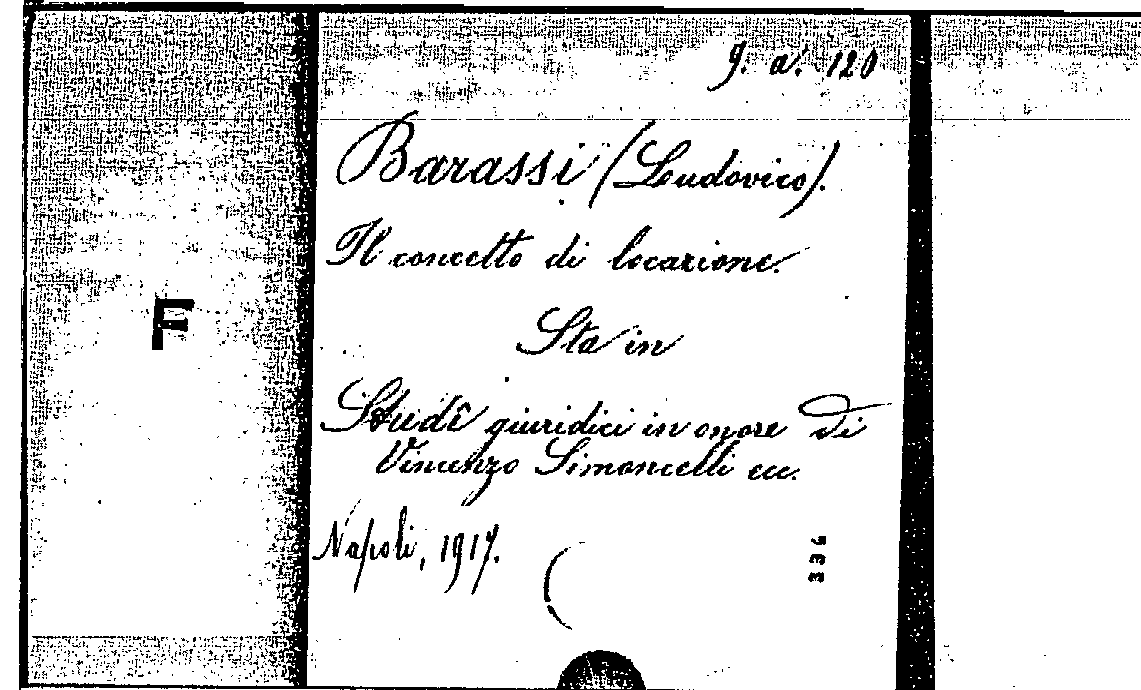 g. a. 120
Barassi (Ludovico).
Il concetto di locazione.
Sta in
F
Studî giuridici in onore di
Vincenzo Simoncelli ecc.
Napoli, 1917.